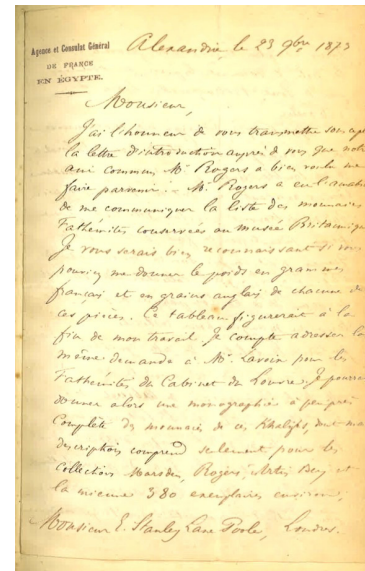 Agence et Consulat Général
DE FRANCE
EN ÉGYPTE.
Alexandrie, le 23 9bre 1873
Monsieur,
J'ai l'honneur de vous transmettre sous ce pli
la lettre d'introduction auprès de vous que notre
ami commun, Mr. Rogers a bien voulu me
faire parvenir. Mr. Rogers a eu l'amabilité
de me communiquer la liste des monnaies
Fathémites conservées au musée Britannique
Je vous serais bien reconnaissant si vous
pouviez me donner le poids en grammes
français et en grains anglais de chacune de
ces pièces. Ce tableau figurerait à la
fin de mon travail. Je compte adresser la
même demande à Mr. Lavoix pour les
Fathémites du Cabinet du Louvre. Je pourrai
donner alors une monographie à peu près
Complète des monnaies de ces Khalifes, dont ma
description comprend seulement pour les
Collections Marsden, Rogers, Artin Bey et
la mienne 380 exemplaires environ,
Monsieur E. Stanley Lane Poole, Londres.